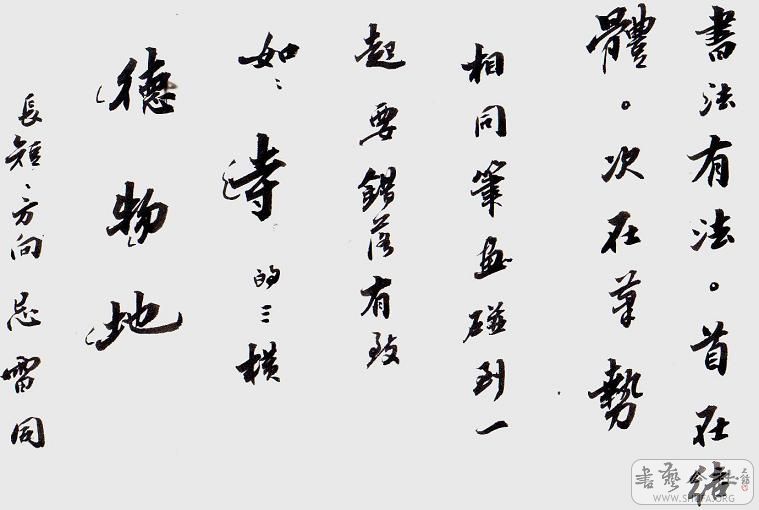 書法有法。首在結
體。次在筆勢
相同筆畫碰到一
起要錯落有致
如:寺的三橫
德物地
長短、方向忌雷同
書藝公社
WWW.SHUFA.ORG